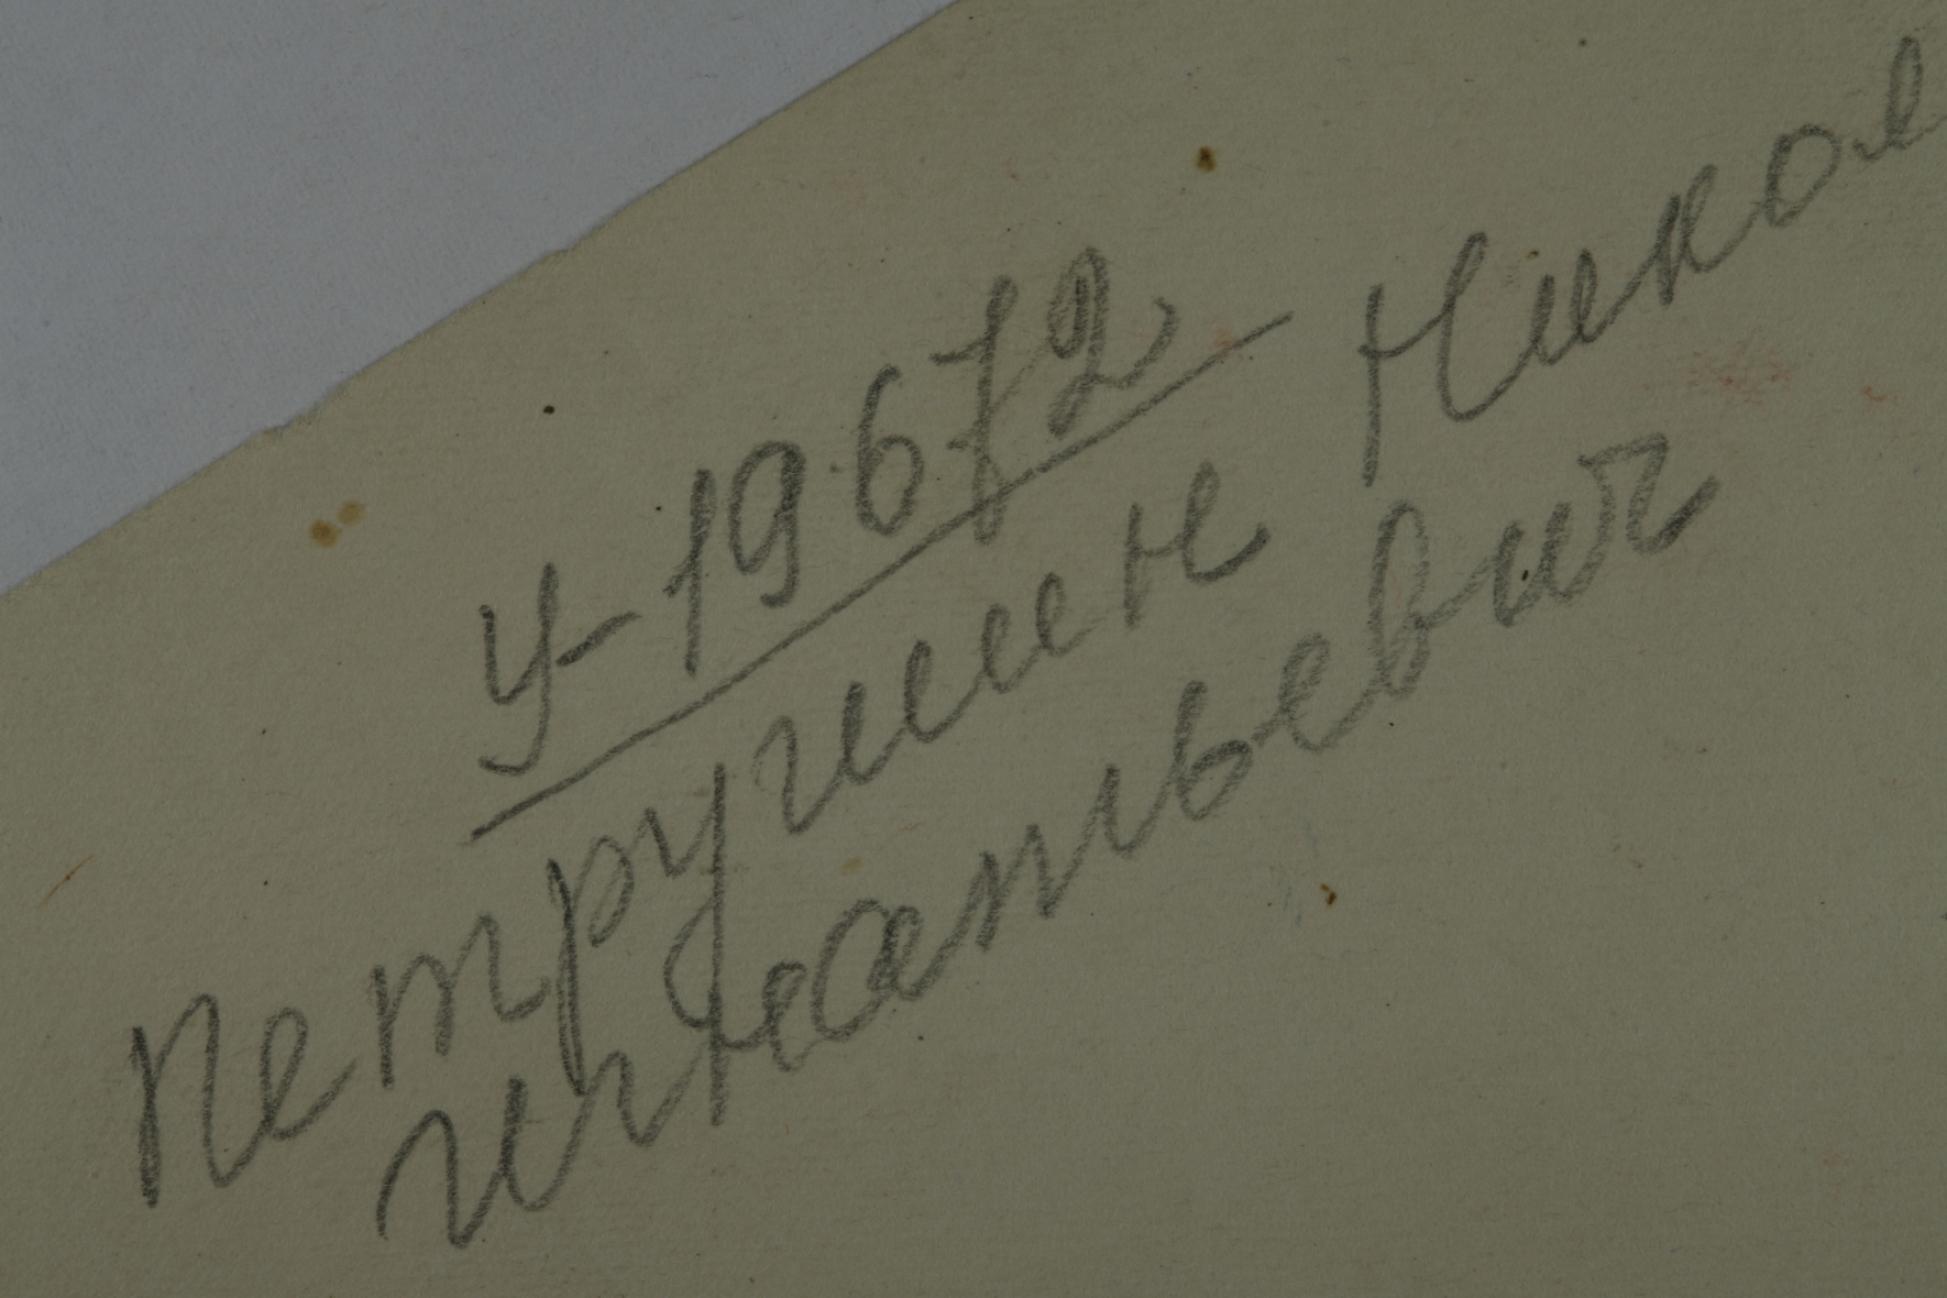 У-19672
Петрушин Никол
Игнатьевич